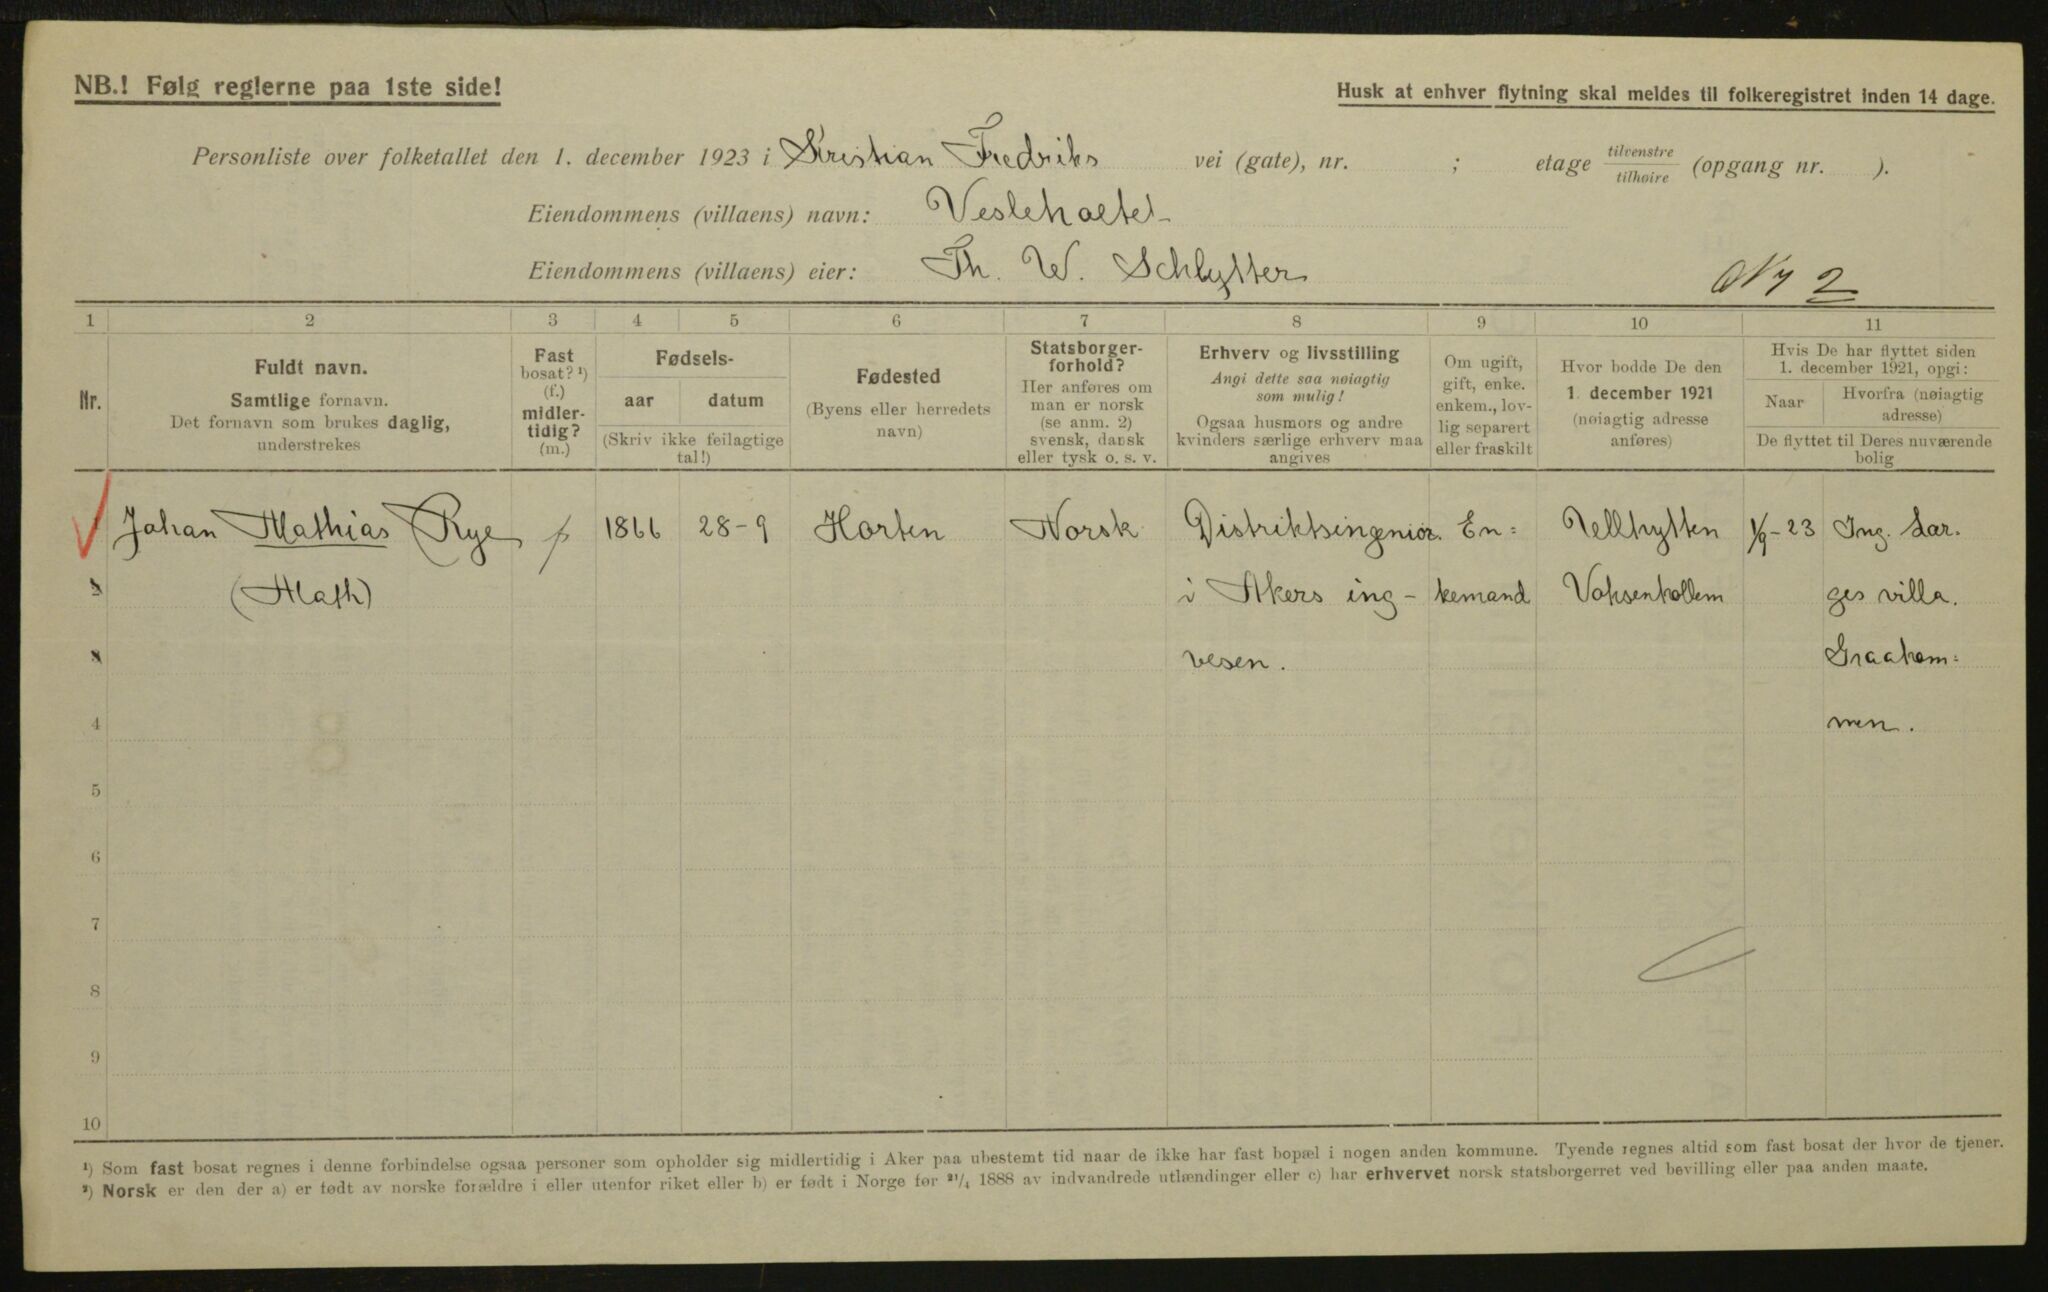 NB.! Følg reglerne paa 1ste side!
Husk at enhver flytning skal meldes til folkeregistret inden 14 dage.
Personliste over folketallet den 1. december 1923 i Kristian Fredriks vei (gate), nr. ; etage tilvenstre tilhøire (opgang nr. ).
Eiendommens (villaens) navn: Veslehaltet
Eiendommens (villaens) eier: Th. W. Schlytter
Ny 2
1 2 3 4 5 6 7 8 9 10 11
Nr.
Fuldt navn.
Samtlige fornavn.
Det fornavn som brukes daglig,
understrekes
Fast
bosat? ¹)
(f.)
midler-
tidig?
(m.)
Fødsels-
aar datum
(Skriv ikke feilagtige
tal!)
Fødested
(Byens eller herredets
navn)
Statsborger-
forhold?
Her anføres om
man er norsk
(se anm. 2)
svensk, dansk
eller tysk o. s. v.
Erhverv og livsstilling
Angi dette saa nøiagtig
som mulig!
Ogsaa husmors og andre
kvinders særlige erhverv maa
angives
Om ugift,
gift, enke.
enkem., lov-
lig separert
eller fraskilt
Hvor bodde De den
1. december 1921
(nøiagtig adresse
anføres)
Hvis De har flyttet siden
1. december 1921, opgi:
Naar
Hvorfra (nøiagtig
adresse)
De flyttet til Deres nuværende
bolig
1 Johan Mathias Rye f 1866 28-9 Horten Norsk Distriktsingeniør En= Uellhytten 1/9-23 Ing. Lar.
2 (Math) i Akers ing- kemand Voksenkollem ges villa.
3 vesen. Graakam=
4 men.
5
6
7
8
9
10
¹) Som fast bosat regnes i denne forbindelse ogsaa personer som opholder sig midlertidig i Aker paa ubestemt tid naar de ikke har fast bopæl i nogen anden kommune. Tyende regnes altid som fast bosat der hvor de tjener.
²) Norsk er den der a) er født av norske forældre i eller utenfor riket eller b) er født i Norge før 21/4 1888 av indvandrede utlændinger eller c) har erhvervet norsk statsborgerret ved bevilling eller paa anden maate.